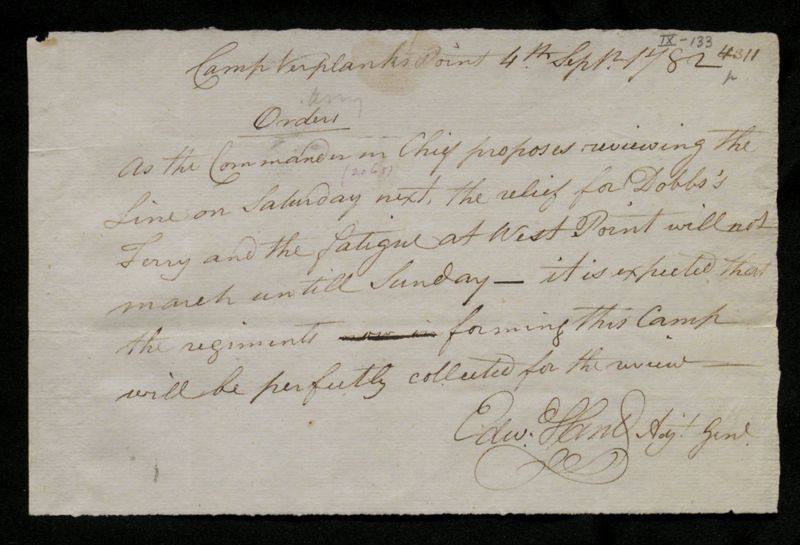 IX-133
Camp Verplanks Point 4th Septr. 1782
4311
Army
Orders
As the Commander in Chief proposes reviewing the
(2065)
Line on Saturday next, the relief for Dobbs's
Ferry and the fatigue at West Point will not
march untill Sunday — it is expected that
the regiments now in forming this Camp
will be perfectly collected for the review —
Edw. Hand Adjt. Genl.